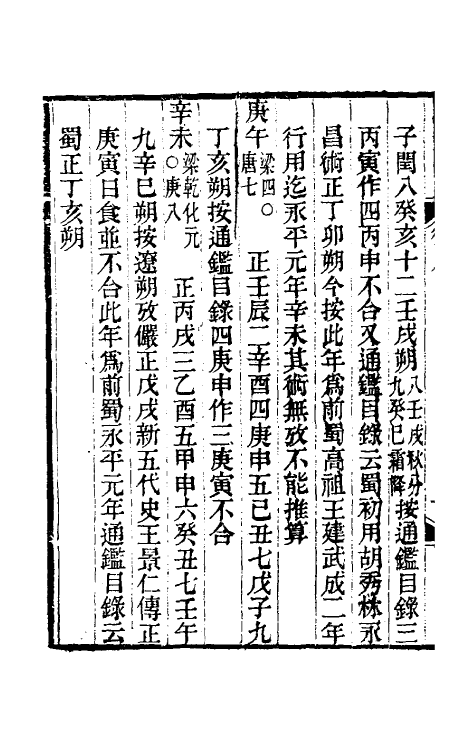 子閏八癸亥十二壬戌朔八壬戌秋分九癸巳霜降按通鑑目錄三
丙寅作四丙申不合又通鑑目錄云蜀初用胡秀林永
昌術正丁卯朔今按此年爲前蜀高祖王建武成二年
行用迄永平元年辛未其術無攷不能推算
庚午梁四〇唐七 正壬辰二辛酉四庚申五己丑七戊子九
丁亥朔按通鑑目錄四庚申作三庚寅不合
辛未梁乾化元〇唐八 正丙戌三乙酉五甲申六癸丑七壬午
九辛巳朔按遼朔攷儼正戊戌新五代史王景仁傳正
庚寅日食並不合此年爲前蜀永平元年通鑑目錄云
蜀正丁亥朔